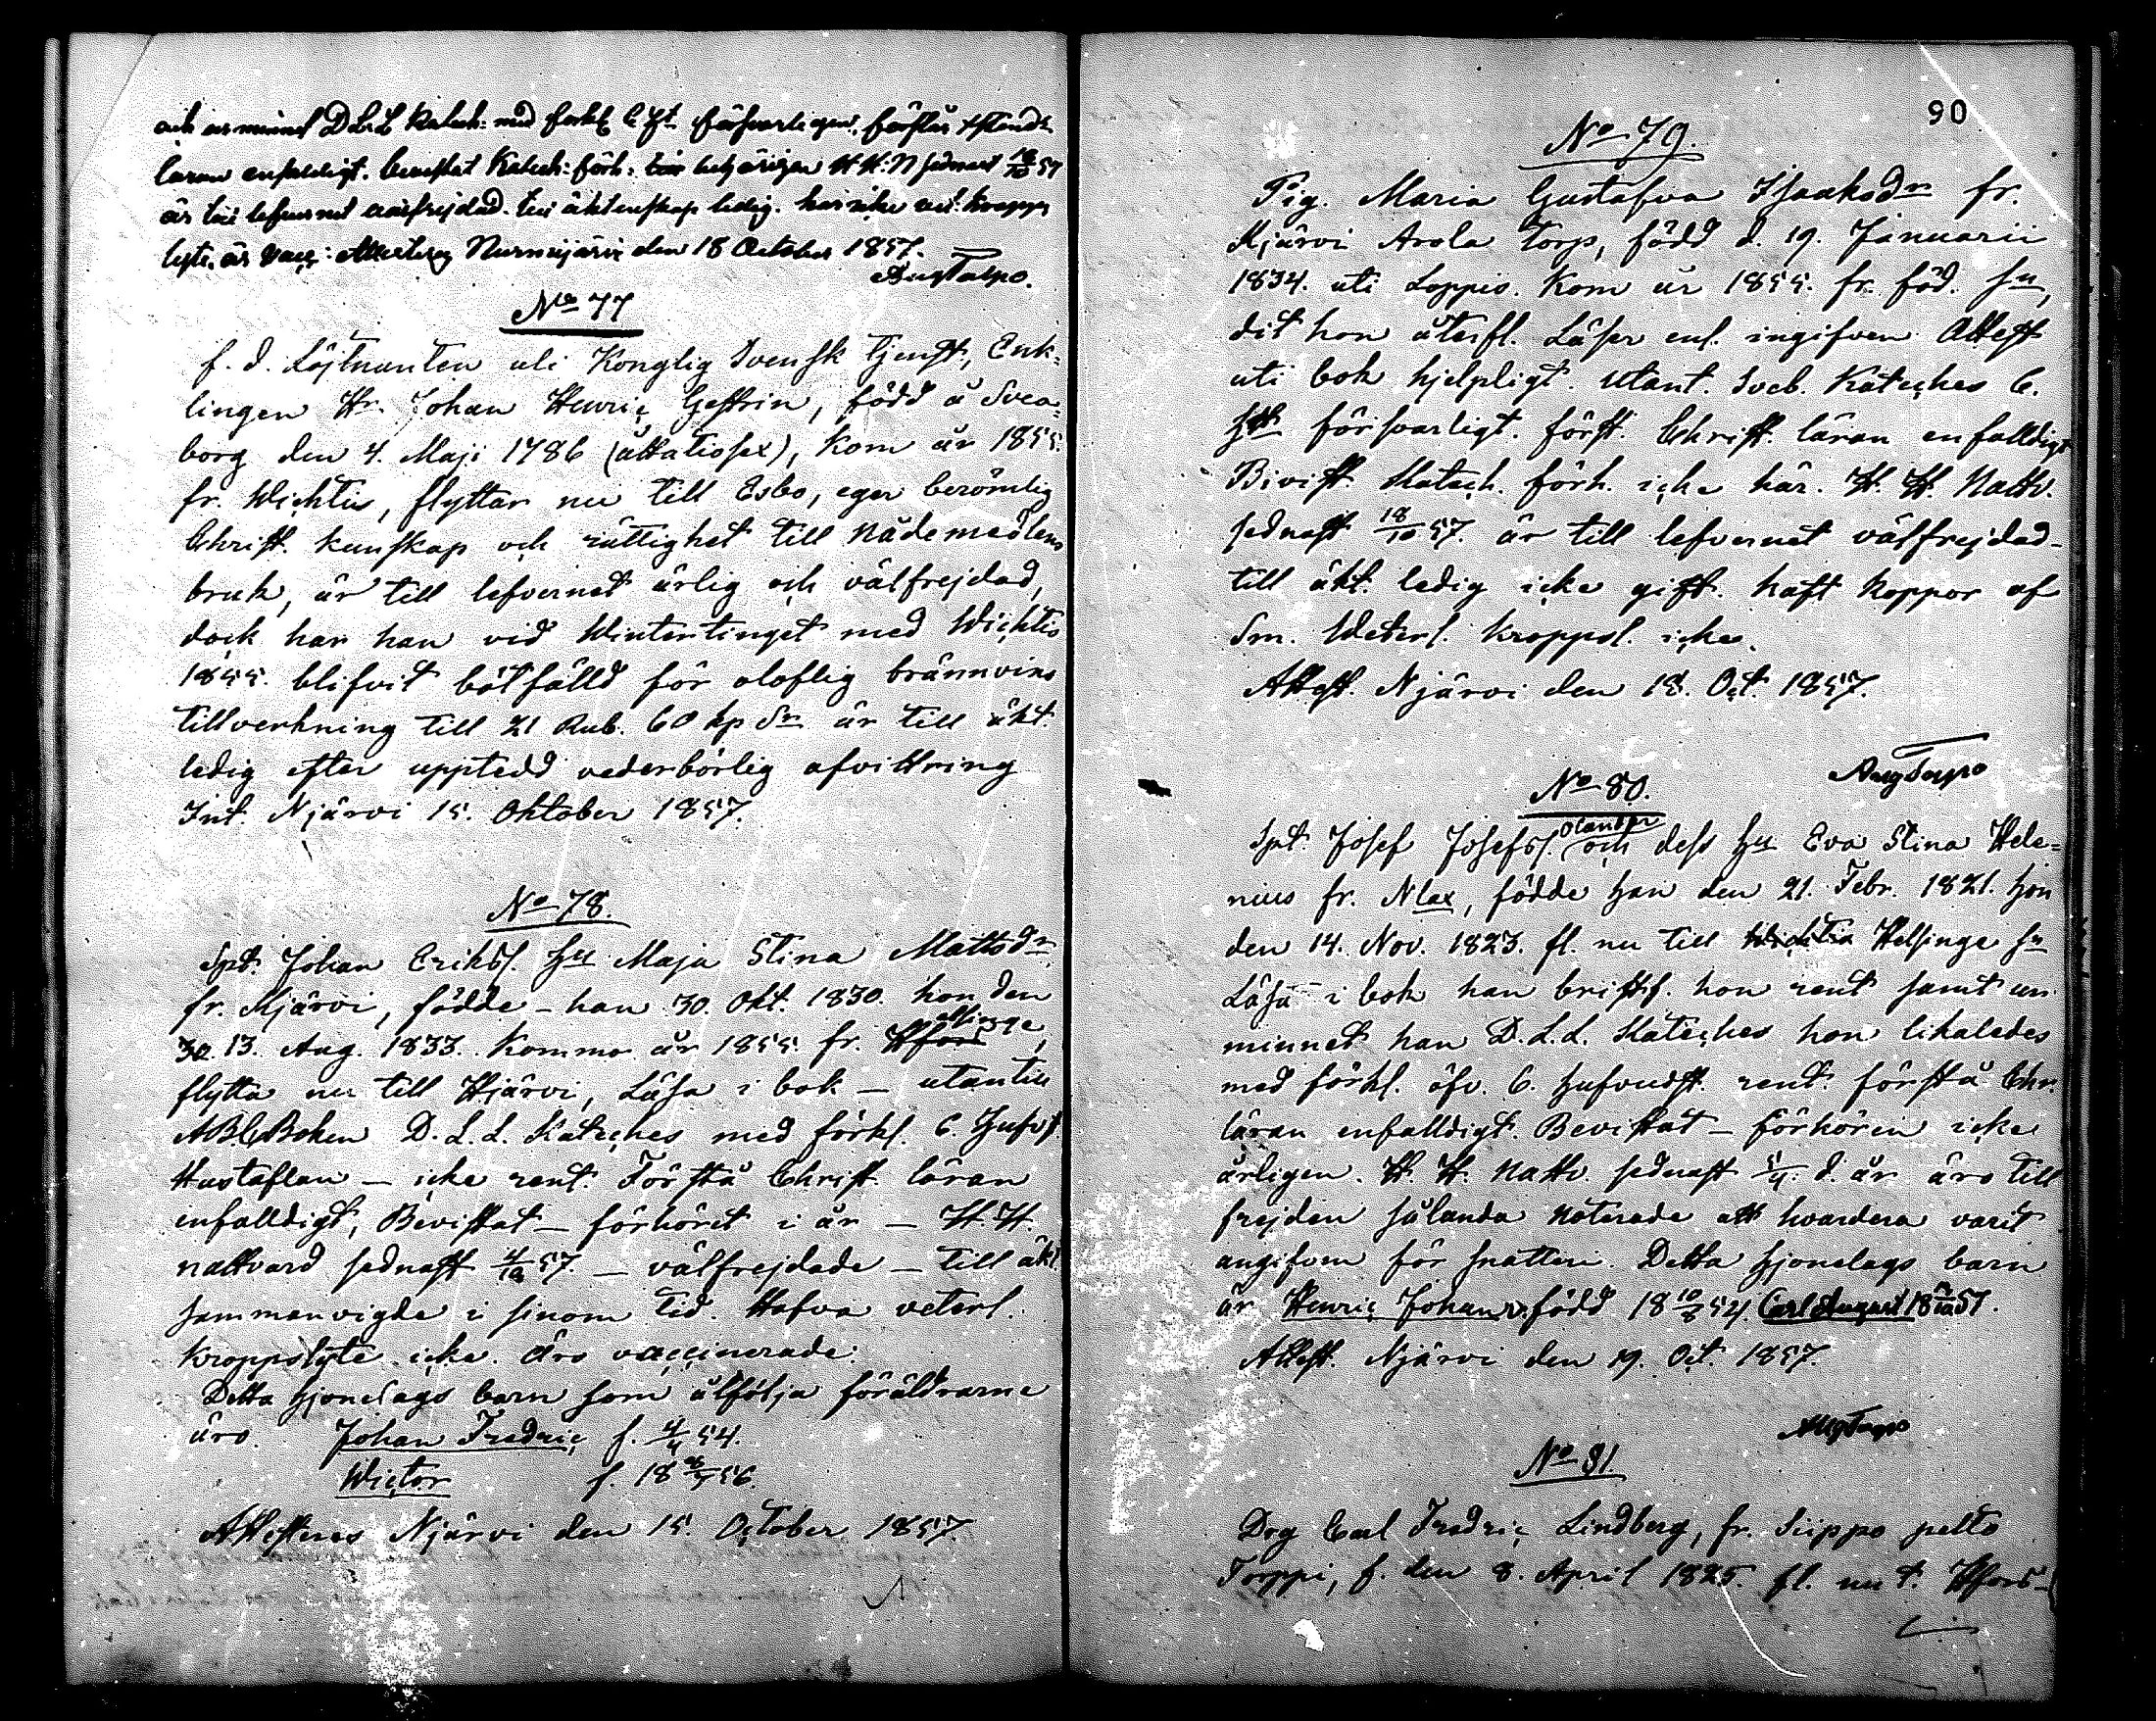 och ur minnet D. L. L. Katech: med förkl. 6 Hft försvarligen, förstår Christend:
läran enfaldigt. bevistat Katech: förh: H. H. N. sednast 18/10 57
är till lefvernet välfrejdad. till äktenskap ledig. har icke vet: kropps
lyte. är vacc: attesterar Nurmijärvi den 18 October 1857.
Aug Taspo.
No 77
f. d. Löjtnanten uti Konglig Svensk tjenst, Enk-
lingen Hr. Johan Henric Gestrin, född å Svea-
borg den 4. Maji 1786 (åttatiosex), kom år 1855.
fr. Wichtis, flyttar nu till Esbo, eger berömlig
Christ. kunskap och rättighet till Nådemedlens
bruk, är till lefvernet ärlig och välfrejdad,
dock har han vid Wintertinget med Wichtis
1855. blifvit bötfälld för oloflig brännvins
tillverkning till 21 Rub. 60 kp Sr är till äkt.
ledig efter upptedd vederbörlig afvittring
Int. Njärvi 15. Oktober 1857.
No 78.
Spt. Johan Eriks. Hu Maja Stina Mattsdr
fr. Kjärvi, födde - han 30. Okt. 1830. hon den
30. 13. Aug. 1833. Kommo år 1855 fr. Hfors ellinge,
flytta nu till Hjärvi, Läsa i bok - utantill
ABC Boken D. L. L. Kateches med förkl. 6. Hufvs.
Hustaflan - icke rent Förstå Christ. läran
enfalldigt, Bevistat - förhöret i år - H. H.
nattvard sednast 4/10 57. - välfrejdade - till äkt
sammanvigde i sinom tid. Hafva veterl.
kroppslyte icke. äro vaccinerade.
Detta hjonelags barn som åtfölja föräldrarne
äro. Johan Fredric f. 4/4 54.
Wictor f. 18 /7 56.
Attesteras Njärvi den 15. October 1857
90
No 79.
Pig. Maria Gustafva Isaaksdr fr.
Kjärvi Arola torp, född d. 19. Januarii
1834. uti Loppis. Kom år 1855. fr. föd. sn,
dit hon återfl. Läser enl. ingifven Attest
uti bok hjelpligt. utant. Sveb. Kateches 6.
Hft försvarligt. först. Christ. läran enfalldigt
Bivist. Katech. förh. icke här. H. H. Nattv.
sednast 18/10 57. är till lefvernet välfrejdad -
till äkt. ledig icke gift. haft koppor af
Sm. Weterl. kroppsl. icke.
Attest. Njärvi den 18. Oct. 1857.
Aug Taspo
No 80.
Olander
Spt. Josef Josefss. och dess Hu Eva Stina Hele-
nius fr. Nlax, födde han den 21. Febr. 1821. hon
den 14. Nov. 1823. fl. nu till Wichtis Helsinge sn
Läsa i bok han bristf. hon rent samt ur
minnet han D. L. L. Kateches hon likaledes
med förkl. öfv. 6. Hufvudst. rent. förstå Chr.
läran enfalldigt. Bevistat - förhören icke
årligen. H. H. Nattv. sednast 5/4. d. år äro till
frejden sålunda noterade att hvardera varit
angifven för snatteri. Detta hjonelags barn
är Henric Johan född 18 10/8 54. Carl August 18 /10 57.
Attest. Njärvi den 19. Oct. 1857.
Aug Taspo
No 81
Drg Carl Fredric Lindberg, fr. Siippo pelto
Torppi, f. den 8. April 1825. fl. nu t. Hfors -